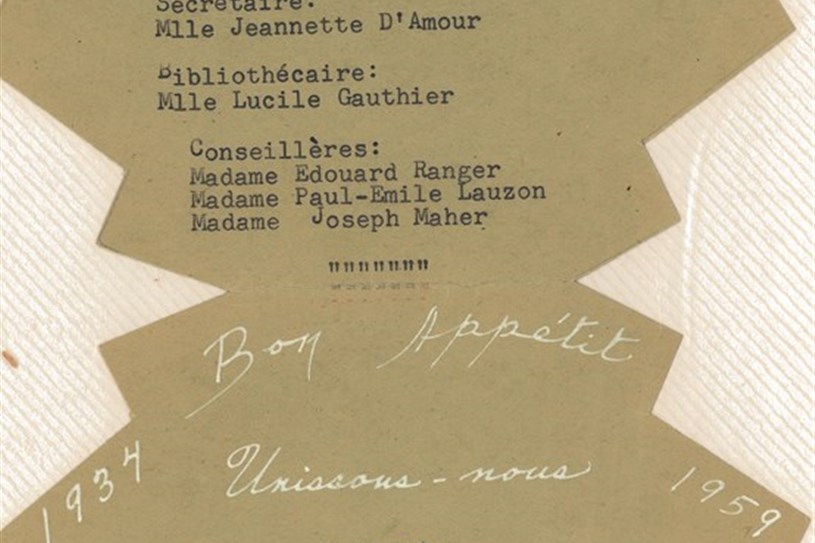 Secrétaire:
Mlle Jeannette D'Amour
Bibliothécaire:
Mlle Lucile Gauthier
Conseillères:
Madame Edouard Ranger
Madame Paul-Emile Lauzon
Madame Joseph Maher
"""""""
Bon Appétit
1934 Unissons-nous 1959